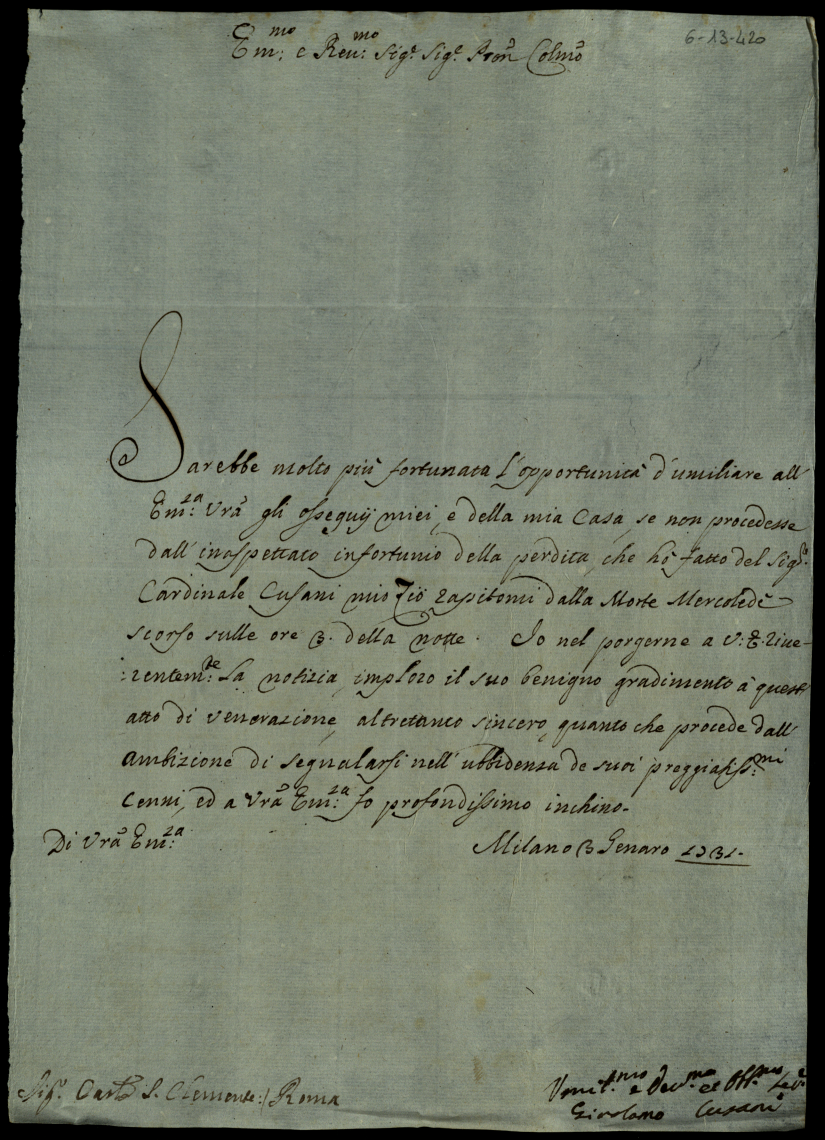 6-13-420
Em:mo e Reu:mo Sig.e Sig.e Pron Colmo
Sarebbe molto più fortunata l'opportunità d'umiliare all'
Em:za Vrã gli ossequij miei, e della mia Casa, se non procedesse
dall'inaspettato infortunio della perdita, che hò fatto del Sig.r
Cardinale Cusani mio Zio rapitomi dalla Morte Mercoledè
scorso sulle ore 3. della notte. Io nel porgerne a V: E. riue-
:rentem:te la notizia, imploro il suo benigno gradimento à quest'
atto di venerazione, altrettanto sincero, quanto che procede dall'
ambizione di segnalarsi nell'ubbidenza de suoi preggiatiss:mi
Cenni, ed a Vrã Em:za fo profondissimo inchino.
Di Vrã Em:za
Milano 3 Genaro 1731.
Sig.r Card S. Clemente:/ Roma
Vmil.mo e Deu.mo et Obl.mo Ser.e
Girolamo Cusani